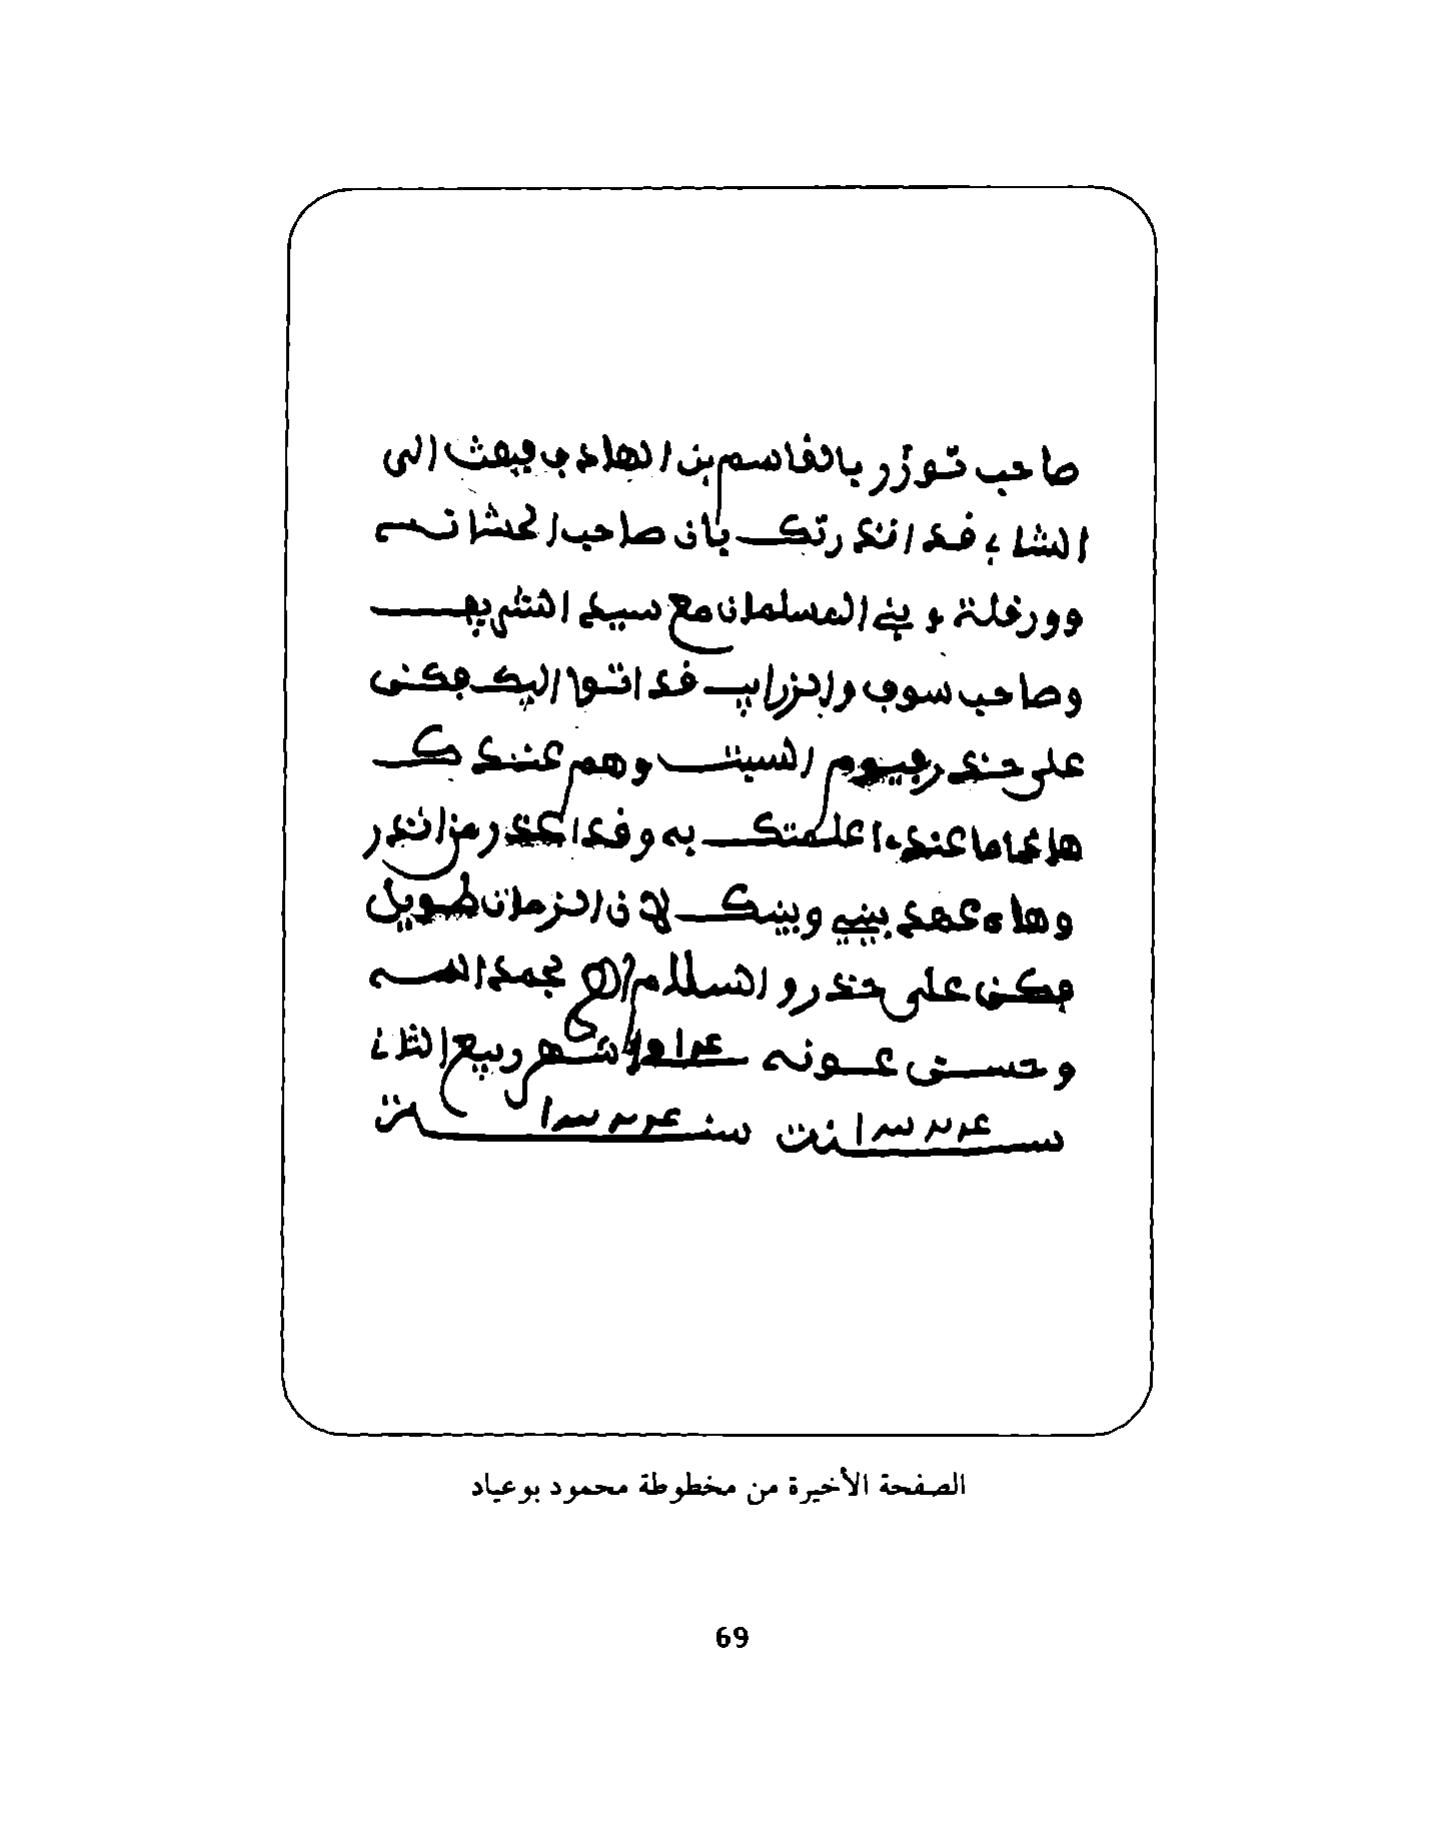 صاحب توزر بالقاسم بن الهادف فبعث الى
الشاب قد انذرتك بان صاحب الحشانه
وورفلة وبني المسلمان مع سيد الشريف
وصاحب سوف والزراب قد اتوا اليك فكن
على حذر فيوم السبت وهم عندك
هاذا ما عند اعلمتك به وقد اعذر من انذر
وهاه عهد بيني وبينك لان الزمان طويل
فكن على حذر والسلام انتهى بحمد الله
وحسن عونه شهر ربيع الثاني
سنت سنة
الصفحة الأخيرة من مخطوطة محمود بوعياد
69